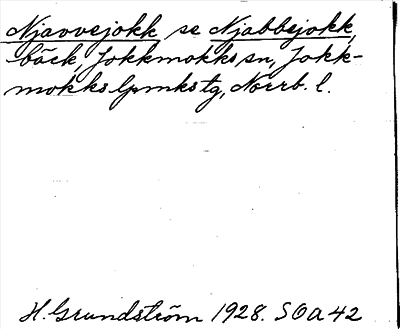 Njavvejokk se Njabbejokk,
bäck, Jokkmokks sn, Jokk-
mokks lpmkstg, Norrb. l.
H. Grundström 1928. SOA 42